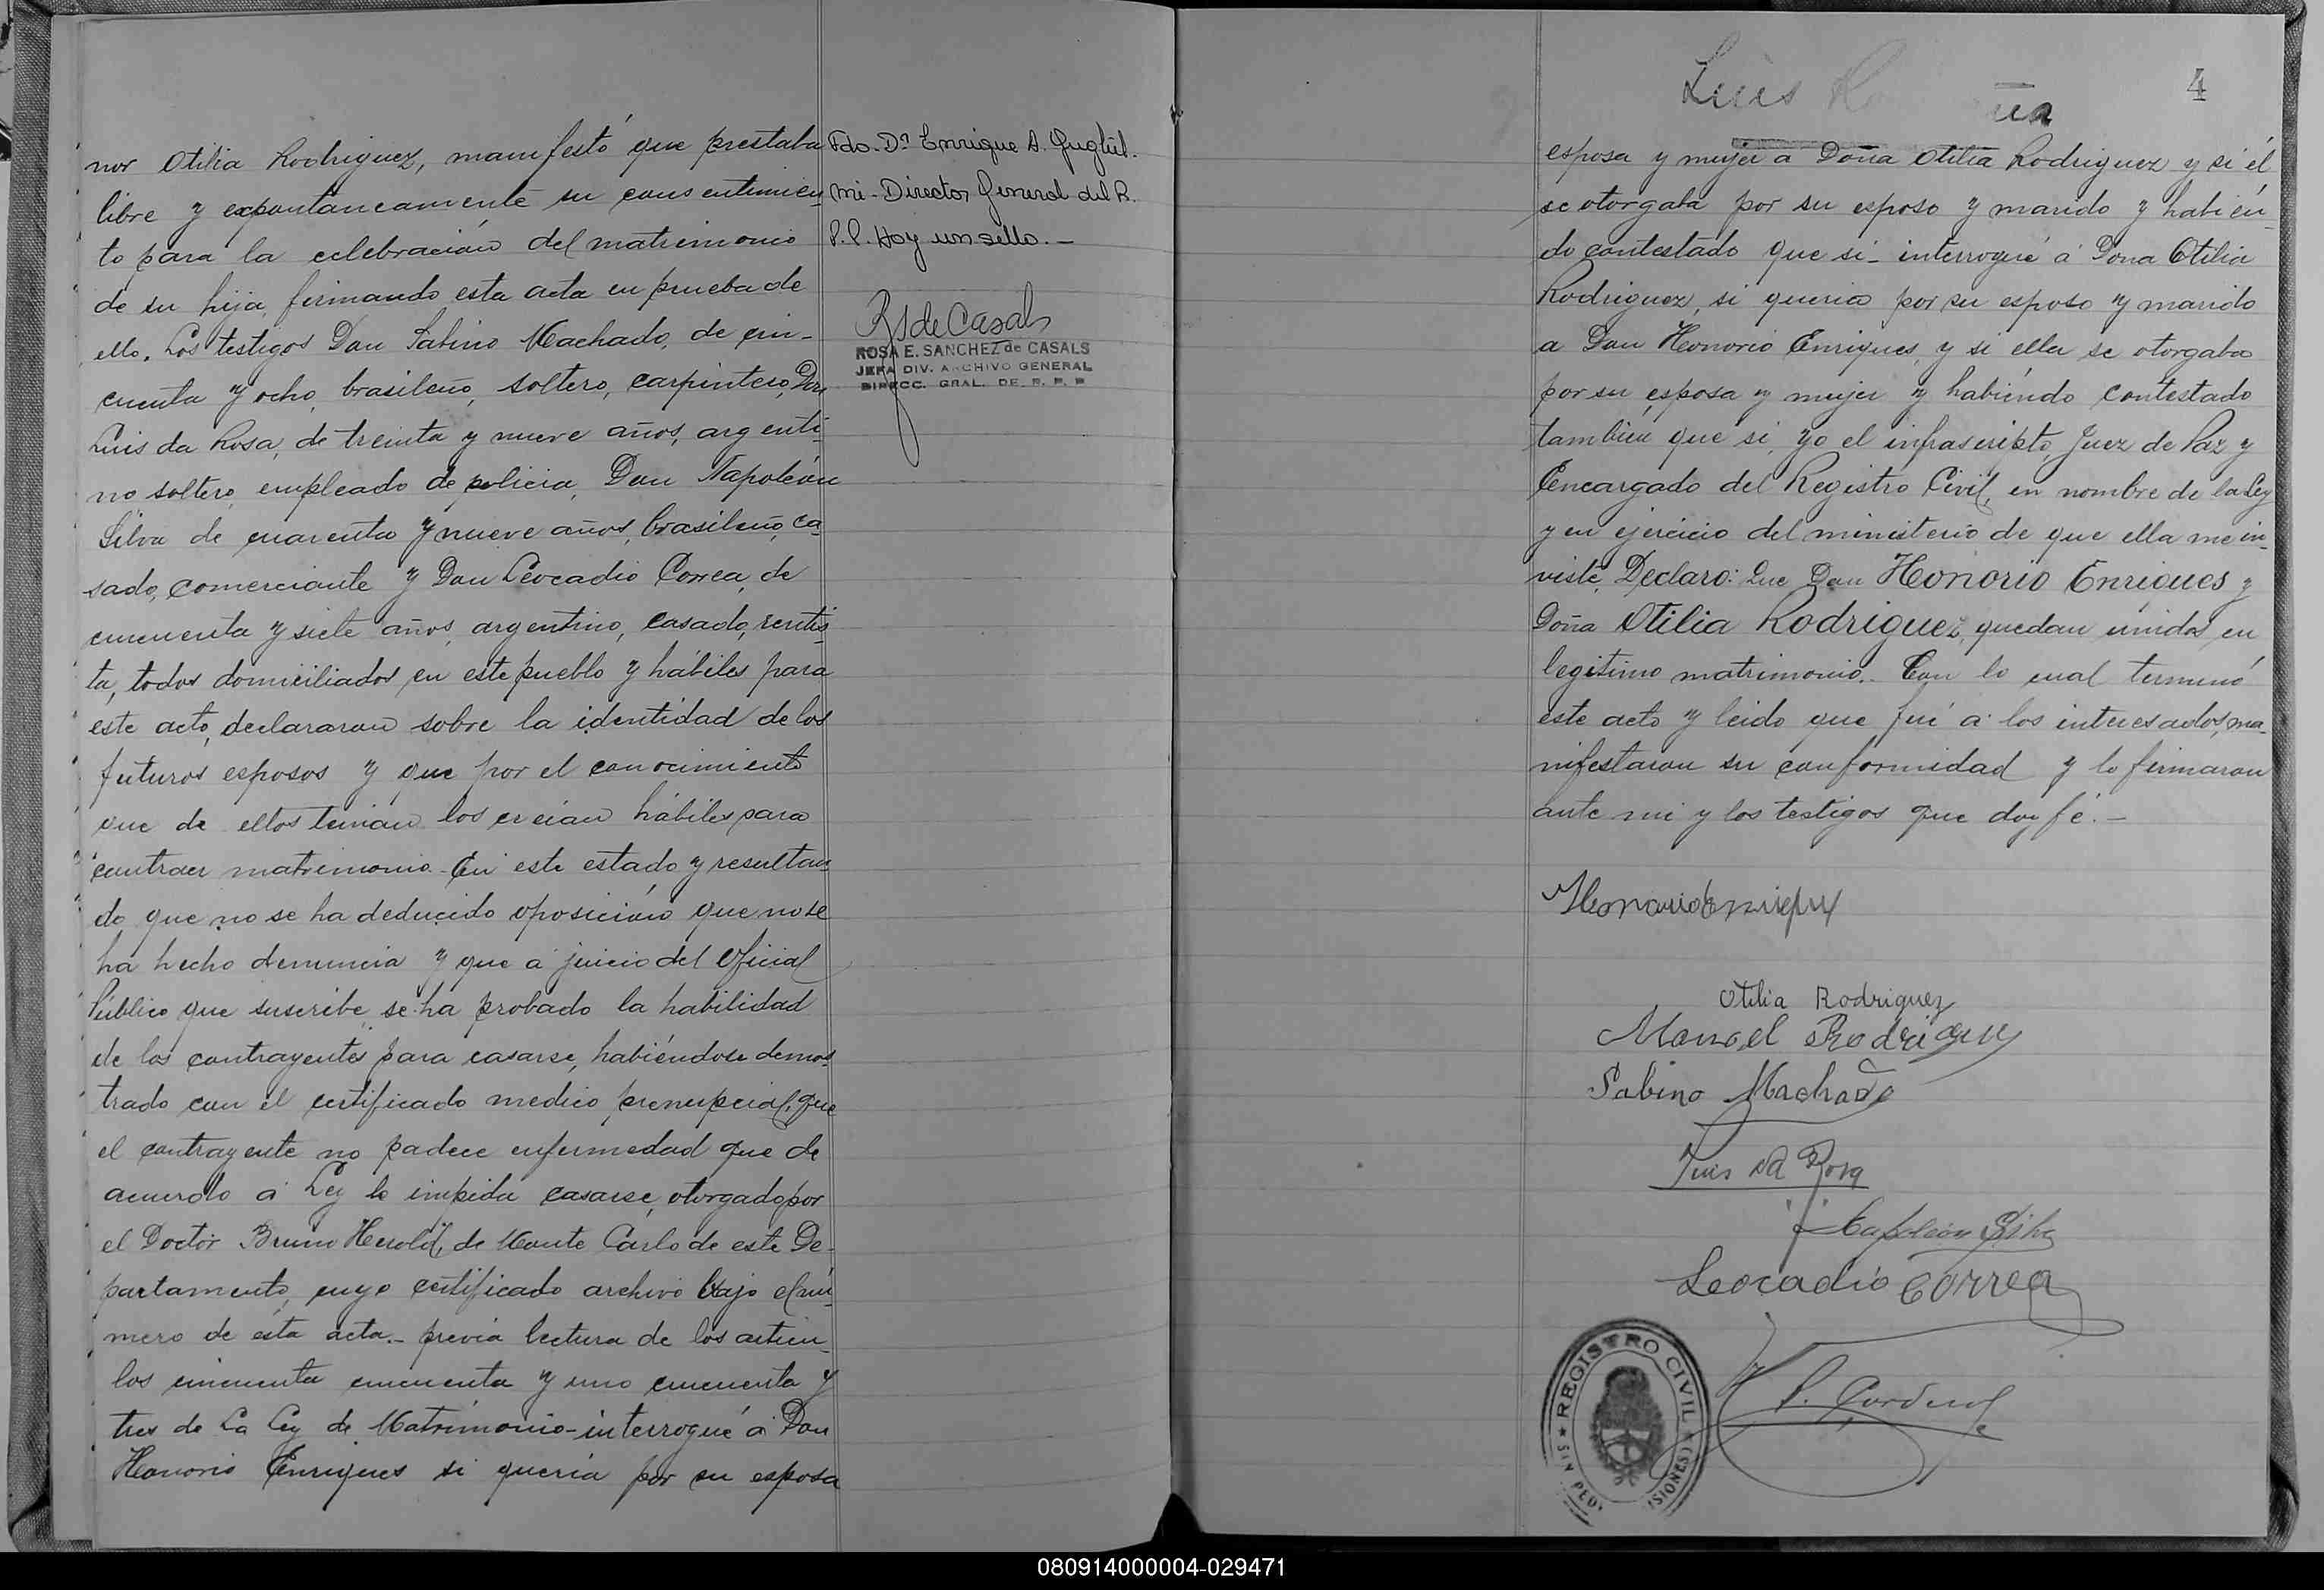 nor Otilia Rodriguez, manifestó que prestaba
libre y expontaneamente su consentimien-
to para la celebración del matrimonio
de su hija firmando esta acta en prueba de
ello. Los testigos Don Sabino Machado, de cin-
cuenta y ocho, brasileño, soltero, carpintero, Don
Luis da Rosa, de treinta y nueve años, argenti-
no soltero, empleado de policia, Don Napoleón
Silva de cuarenta y nueve años, brasileño, ca-
sado, comerciante y Don Leocadio Correa, de
cincuenta y siete años, argentino, casado, rentis-
ta, todos domiciliados en este pueblo y hábiles para
este acto, declararon sobre la identidad de los
futuros esposos y que por el conocimiento
que de ellos tenian los creían hábiles para
contraer matrimonio. En este estado y resultan-
do que no se ha deducido oposición que no se
ha hecho denuncia y que a juicio del Oficial
Público que suscribe se ha probado la habilidad
de los contrayentes para casarse, habiéndose demos-
trado con el certificado medico prenupcial, que
el contrayente no padece enfermedad que de
acuerdo a Ley le impida casarse, otorgado por
el Doctor Bruno Herold, de Monte Carlo de este De-
partamento, cuyo certificado archivo bajo el nú-
mero de esta acta.- previa lectura de los articu-
los cincuenta cincuenta y uno cincuenta y
tres de La Ley de Matrimonio-interrogué a Don
Honorio Enriques si queria por su esposa
Fdo. Dr. Enrique A. Gugliel-
mi-Director General del R.
P.P. Hay un sello.-
RS de Casals
ROSA E. SANCHEZ de CASALS
JEFA DIV. ARCHIVO GENERAL
DIRECC. GRAL. DE R. P. P.
Luis
4
esposa y mujer a Doña Otilia Rodriguez y si él
se otorgaba por su esposo y marido y habien-
do contestado que si- interrogué a Dona Otilia
Rodriguez, si queria por su esposo y marido
a Don Honorio Enriques, y si ella se otorgaba
por su esposa y mujer y habiendo contestado
tambien que si, yo el infrascripto, Juez de Paz y
Encargado del Registro Civil, en nombre de la Ley
y en ejercicio del ministerio de que ella me in-
viste, Declaro: Que Don Honorio Enriques y
Doña Otilia Rodriguez, quedan unidos en
legitimo matrimonio. Con lo cual terminó
este acto y leido que fué a los interesados, ma-
nifestaron su conformidad y lo firmaron
ante mi y los testigos que doy fé.-
Honorio Enriques
Otilia Rodriguez
Manoel Rodriguez
Sabino Machado
Luis da Rosa
Napoleón Silva
Leocadio Correa
REGISTRO CIVIL